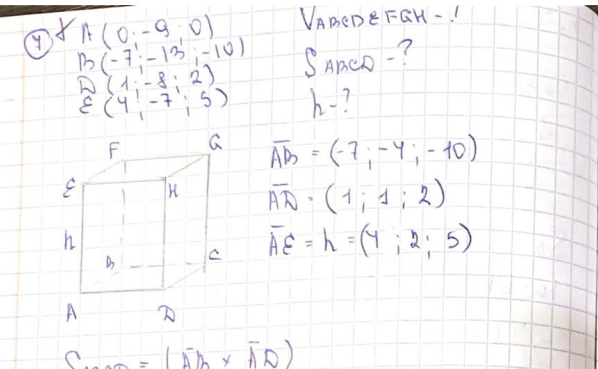 ④ A (0; -9; 0)
B (-7; -13; -10)
D (1; -8; 2)
E (4; -7; 5)
VABCDEFGH - ?
SABCD - ?
h - ?
F G
E H
h
B C
A D
AB = (-7; -4; -10)
AD = (1; 1; 2)
AE = h = (4; 2; 5)
SABCD = (AB × AD)